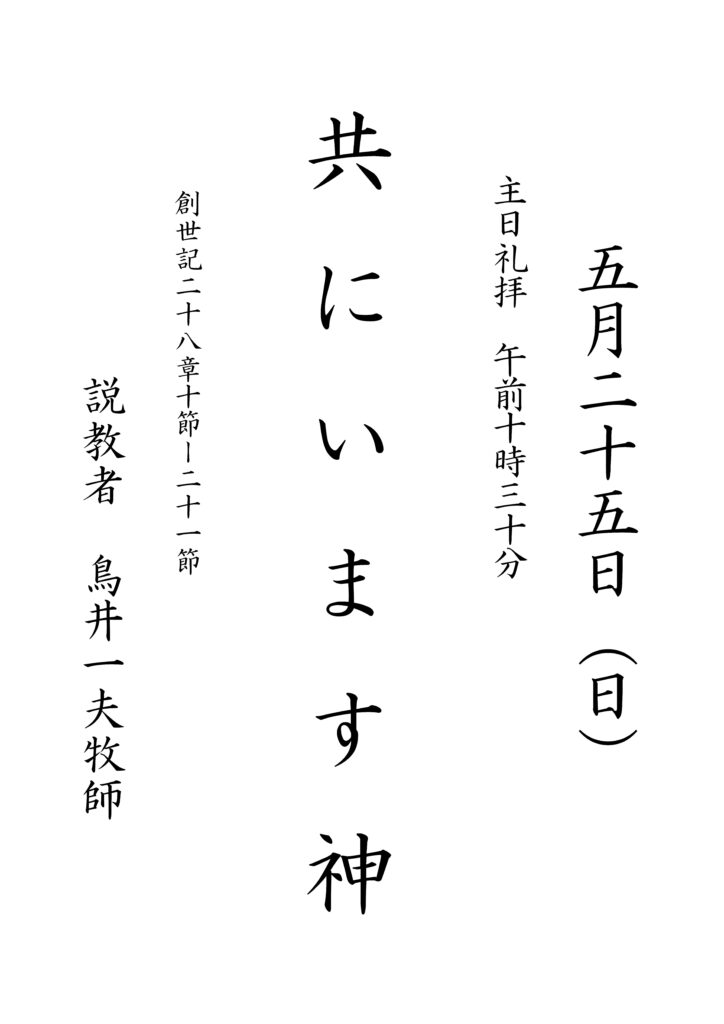 五月二十五日（日）
主日礼拝　午前十時三十分
共にいます神
創世記二十八章十節ー二十一節
説教者　鳥井一夫牧師